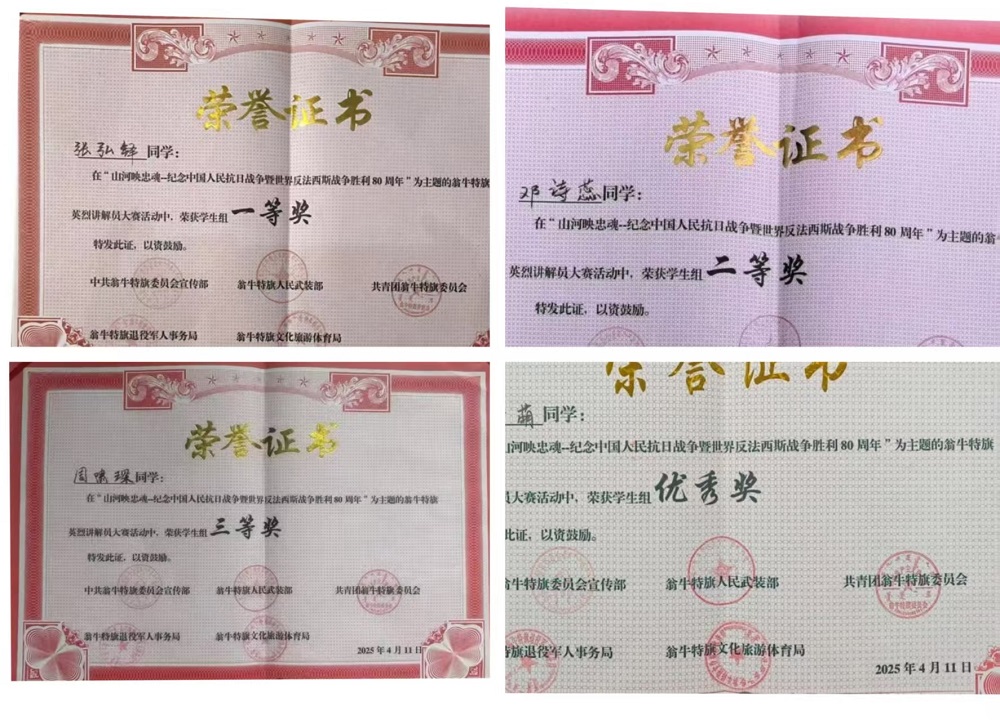 荣誉证书
张弘轾 同学：
在“山河映忠魂--纪念中国人民抗日战争暨世界反法西斯战争胜利80周年”为主题的翁牛特旗
英烈讲解员大赛活动中，荣获学生组一等奖
特发此证，以资鼓励。
中共翁牛特旗委员会宣传部 翁牛特旗人民武装部 共青团翁牛特旗委员会
翁牛特旗退役军人事务局 翁牛特旗文化旅游体育局
荣誉证书
邓诗蕊同学：
在“山河映忠魂--纪念中国人民抗日战争暨世界反法西斯战争胜利80周年”为主题的翁牛
英烈讲解员大赛活动中，荣获学生组二等奖
特发此证，以资鼓励。
荣誉证书
周啸琛同学：
在“山河映忠魂--纪念中国人民抗日战争暨世界反法西斯战争胜利80周年”为主题的翁牛特旗
英烈讲解员大赛活动中，荣获学生组三等奖
特发此证，以资鼓励。
中共翁牛特旗委员会宣传部 翁牛特旗人民武装部 共青团翁牛特旗委员会
翁牛特旗退役军人事务局 翁牛特旗文化旅游体育局
2025年4月11日
荣誉证书
萌同学：
河映忠魂--纪念中国人民抗日战争暨世界反法西斯战争胜利80周年”为主题的翁牛特旗
员大赛活动中，荣获学生组优秀奖
此证，以资鼓励。
翁牛特旗委员会宣传部 翁牛特旗人民武装部 共青团翁牛特旗委员会
特旗退役军人事务局 翁牛特旗文化旅游体育局
2025年4月11日